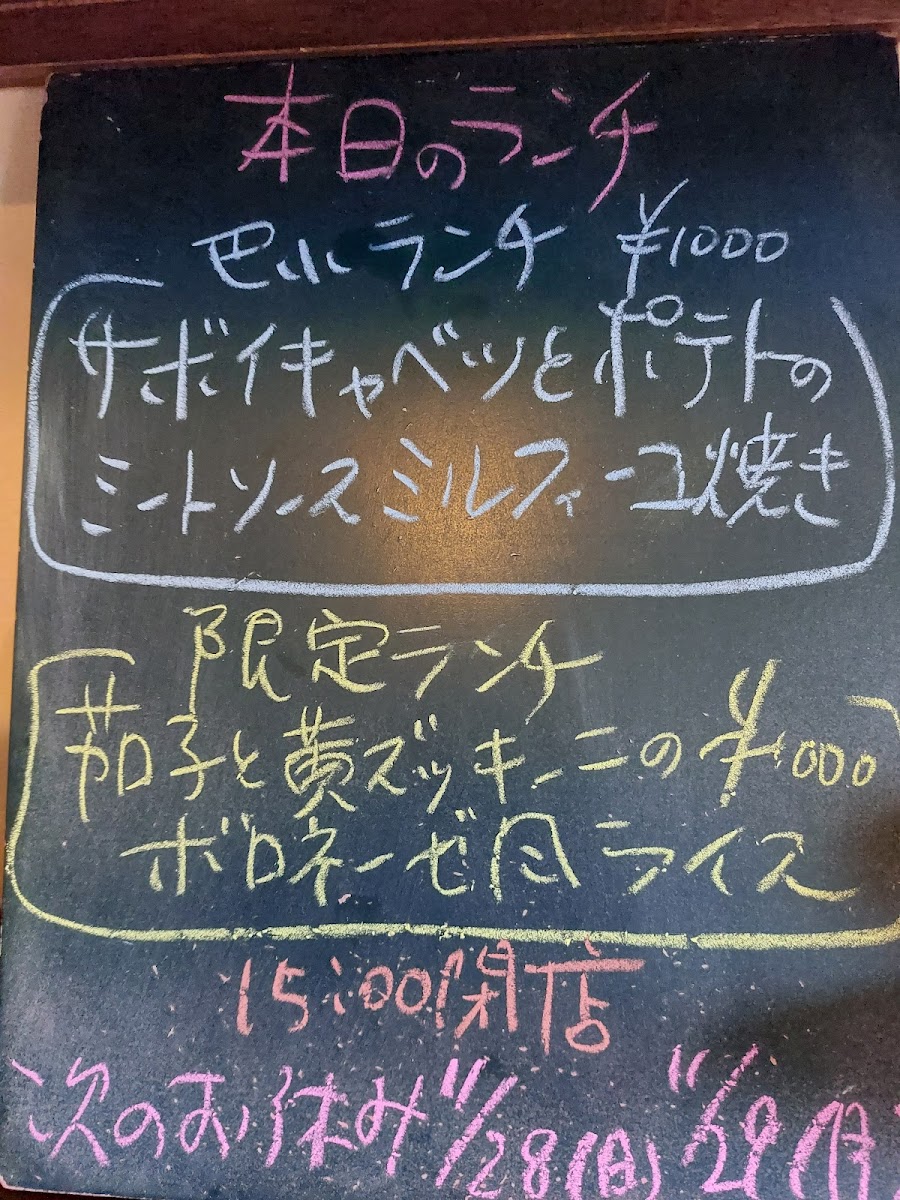 本日のランチ
ランチ ¥1000
サボイキャベツとポテトの
ミートソースミルフィーユ焼き
限定ランチ
茄子と黄ズッキーニの ¥1000
ボロネーゼ風ライス
15:00閉店
次のお休み 11/28(日) 11/29(月)